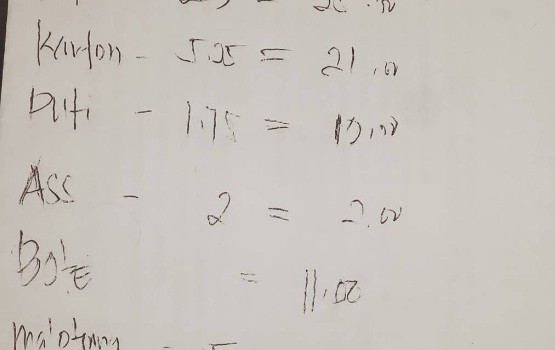 = 20.00
Karton - 5.25 = 21.00
Puti - 1.75 = 10.00
Ass - 2 = 2.00
Bote = 11.00